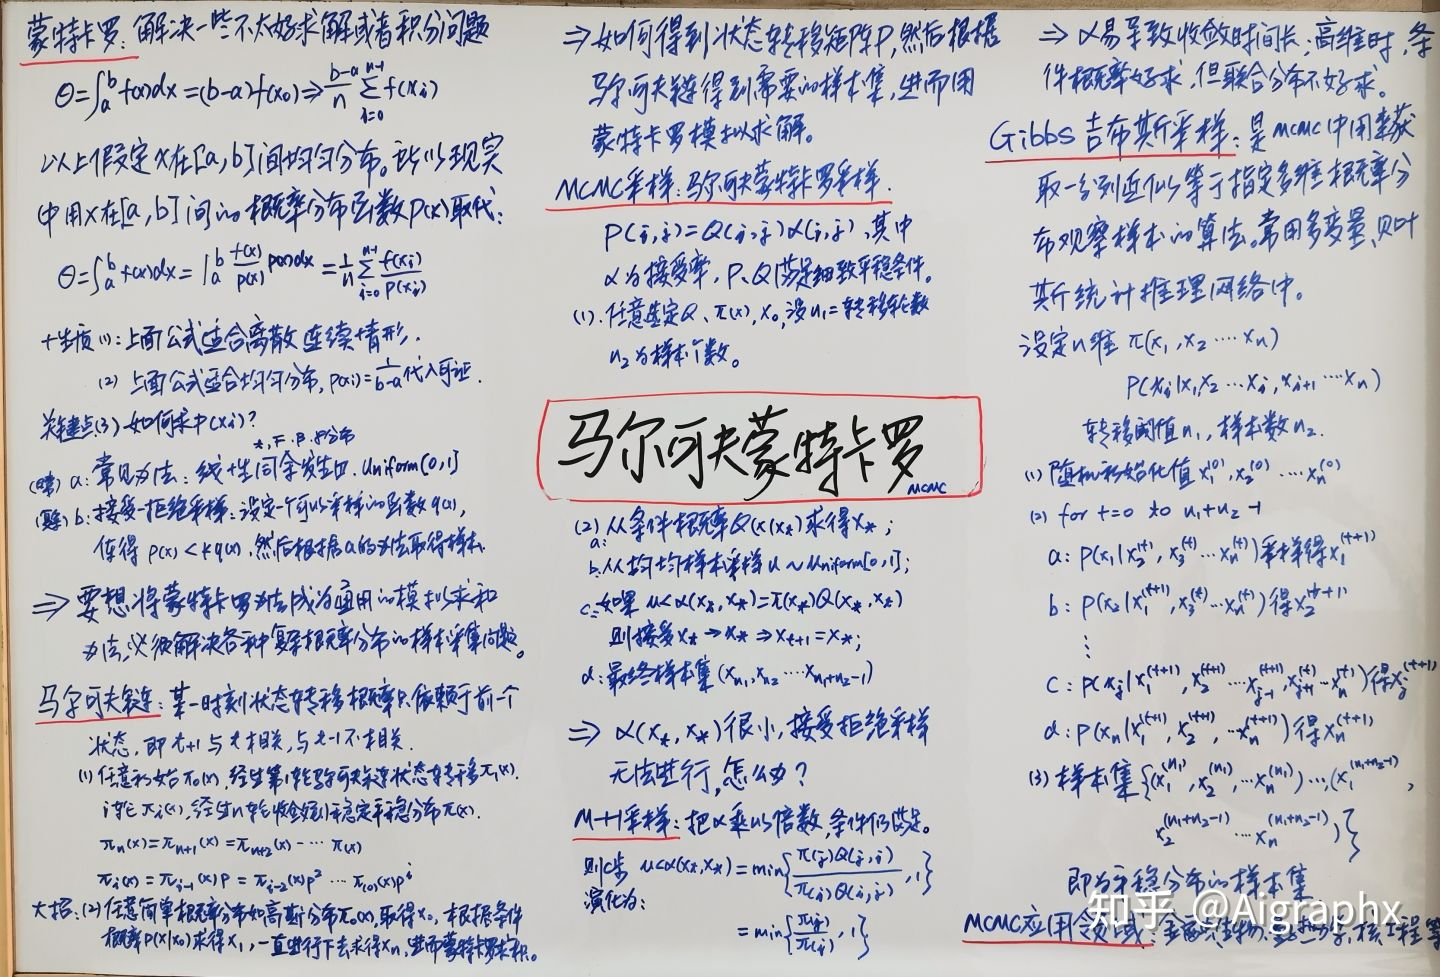 蒙特卡罗:解决一些不太好求解或者积分问题
θ=∫ₐᵇf(x)dx=(b-a)f(x₀)⇒(b-a)/n Σᵢ₌₀ⁿ⁻¹ f(xᵢ)
以上假设定x在[a,b]间均匀分布。所以现实
中用x在[a,b]间的概率分布函数p(x)取代:
θ=∫ₐᵇf(x)dx=∫ₐᵇ f(x)/p(x) p(x)dx=1/n Σᵢ₌₀ⁿ⁻¹ f(xᵢ)/p(xᵢ)
性质(1):上面公式适合离散连续情形.
(2) 上面公式适合均匀分布,p(xᵢ)=1/(b-a)代入可证.
关键点(3)如何求p(xᵢ)?
t,F,β,分布
a:常见办法:线性同余发生四.uniform[0,1]
b:接受-拒绝采样:设定一个可以采样的函数q(x),
使得 p(x)<kq(x),然后根据a的办法取得样本.
⇒要想将蒙特卡罗办法成为通用的模拟求和
办法,必须解决各种复杂概率分布的样本采集问题。
马尔可夫链:某一时刻状态转移概率只依赖于前一个
状态,即t+1与t相关,与t-1不相关.
(1)任意初始π₀(x),经过第1轮马尔可夫链状态转移π₁(x).
i轮πᵢ(x),经过n轮收敛到稳定平稳分布π(x).
πₙ(x)=πₙ₊₁(x)=πₙ₊₂(x)-…π(x)
πᵢ(x)=πᵢ₋₁(x)P=πᵢ₋₂(x)P²…π₍₀₎(x)Pⁱ
大招:(2)任意简单概率分布如高斯分布π₀(x),取得x₀,根据条件
概率P(x|x₀)求得x₁,一直进行下去求得xₙ,进而蒙特卡罗求积。
⇒如何得到状态转移矩阵P,然后根据
马尔可夫链得到需要的样本集,进而用
蒙特卡罗模拟求解。
MCMC采样:马尔可夫蒙特卡罗采样.
P(i,j)=Q(i,j)α(i,j),其中
α为接受率,P、Q满足细致平稳条件。
(1).任意选定Q、π(x),x₀,设n₁=转移轮数
n₂为样本个数。
马尔可夫蒙特卡罗
MCMC
(2)从条件概率Q(x|x*)求得x*;
a:
b.从均匀样本采样u~uniform[0,1];
c:如果u<α(x*,x*)=π(x*)Q(x*,x*)
则接受x*→x*⇒xₜ₊₁=x*;
d:最终样本集(xₙ₁,xₙ₂…xₙ₁₊ₙ₂₋₁)
⇒α(x*,x*)很小,接受拒绝采样
无法进行,怎么办?
M-H采样:把α乘以倍数,条件仍满足。
则c步 u<α(x*,x*)=min{π(j)Q(j,i)/π(i)Q(i,j),1}
演化为:
=min{π(j)/π(i),1}
⇒α易导致收敛时间长;高维时,条
件概率好求,但联合分布不好求。
Gibbs吉布斯采样:是MCMC中用来获
取一系列近似等于指定多维概率分
布观察样本的算法。常用多变量,贝叶
斯统计推理网络中。
设定n维 π(x₁,x₂…xₙ)
P(xᵢ|x₁,x₂…xᵢ,xᵢ₊₁…xₙ)
转移阈值n₁,样本数n₂.
(1)随机初始化值x₁⁽⁰⁾,x₂⁽⁰⁾…xₙ⁽⁰⁾
(2) for t=0 to n₁+n₂-1
a:P(x₁|x₂⁽ᵗ⁾,x₃⁽ᵗ⁾…xₙ⁽ᵗ⁾)采样得x₁⁽ᵗ⁺¹⁾
b:P(x₂|x₁⁽ᵗ⁺¹⁾,x₃⁽ᵗ⁾…xₙ⁽ᵗ⁾)得x₂ᵗ⁺¹⁾
⋮
c:P(xⱼ|x₁⁽ᵗ⁺¹⁾,x₂⁽ᵗ⁺¹⁾…xⱼ₋₁⁽ᵗ⁺¹⁾,xⱼ₊₁⁽ᵗ⁾…xₙ⁽ᵗ⁾)得xⱼ⁽ᵗ⁺¹⁾
d:P(xₙ|x₁⁽ᵗ⁺¹⁾,x₂⁽ᵗ⁺¹⁾,…xₙ⁽ᵗ⁺¹⁾)得xₙ⁽ᵗ⁺¹⁾
(3)样本集{(x₁⁽ⁿ¹⁾,x₂⁽ⁿ¹⁾,…xₙ⁽ⁿ¹⁾)…(x₁⁽ⁿ¹⁺ⁿ²⁻¹⁾,
x₂⁽ⁿ¹⁺ⁿ²⁻¹⁾…xₙ⁽ⁿ¹⁺ⁿ²⁻¹⁾)}
即为平稳分布的样本集
MCMC应用领域:金融,生物,热力学,核工程等
知乎 @Aigraphx